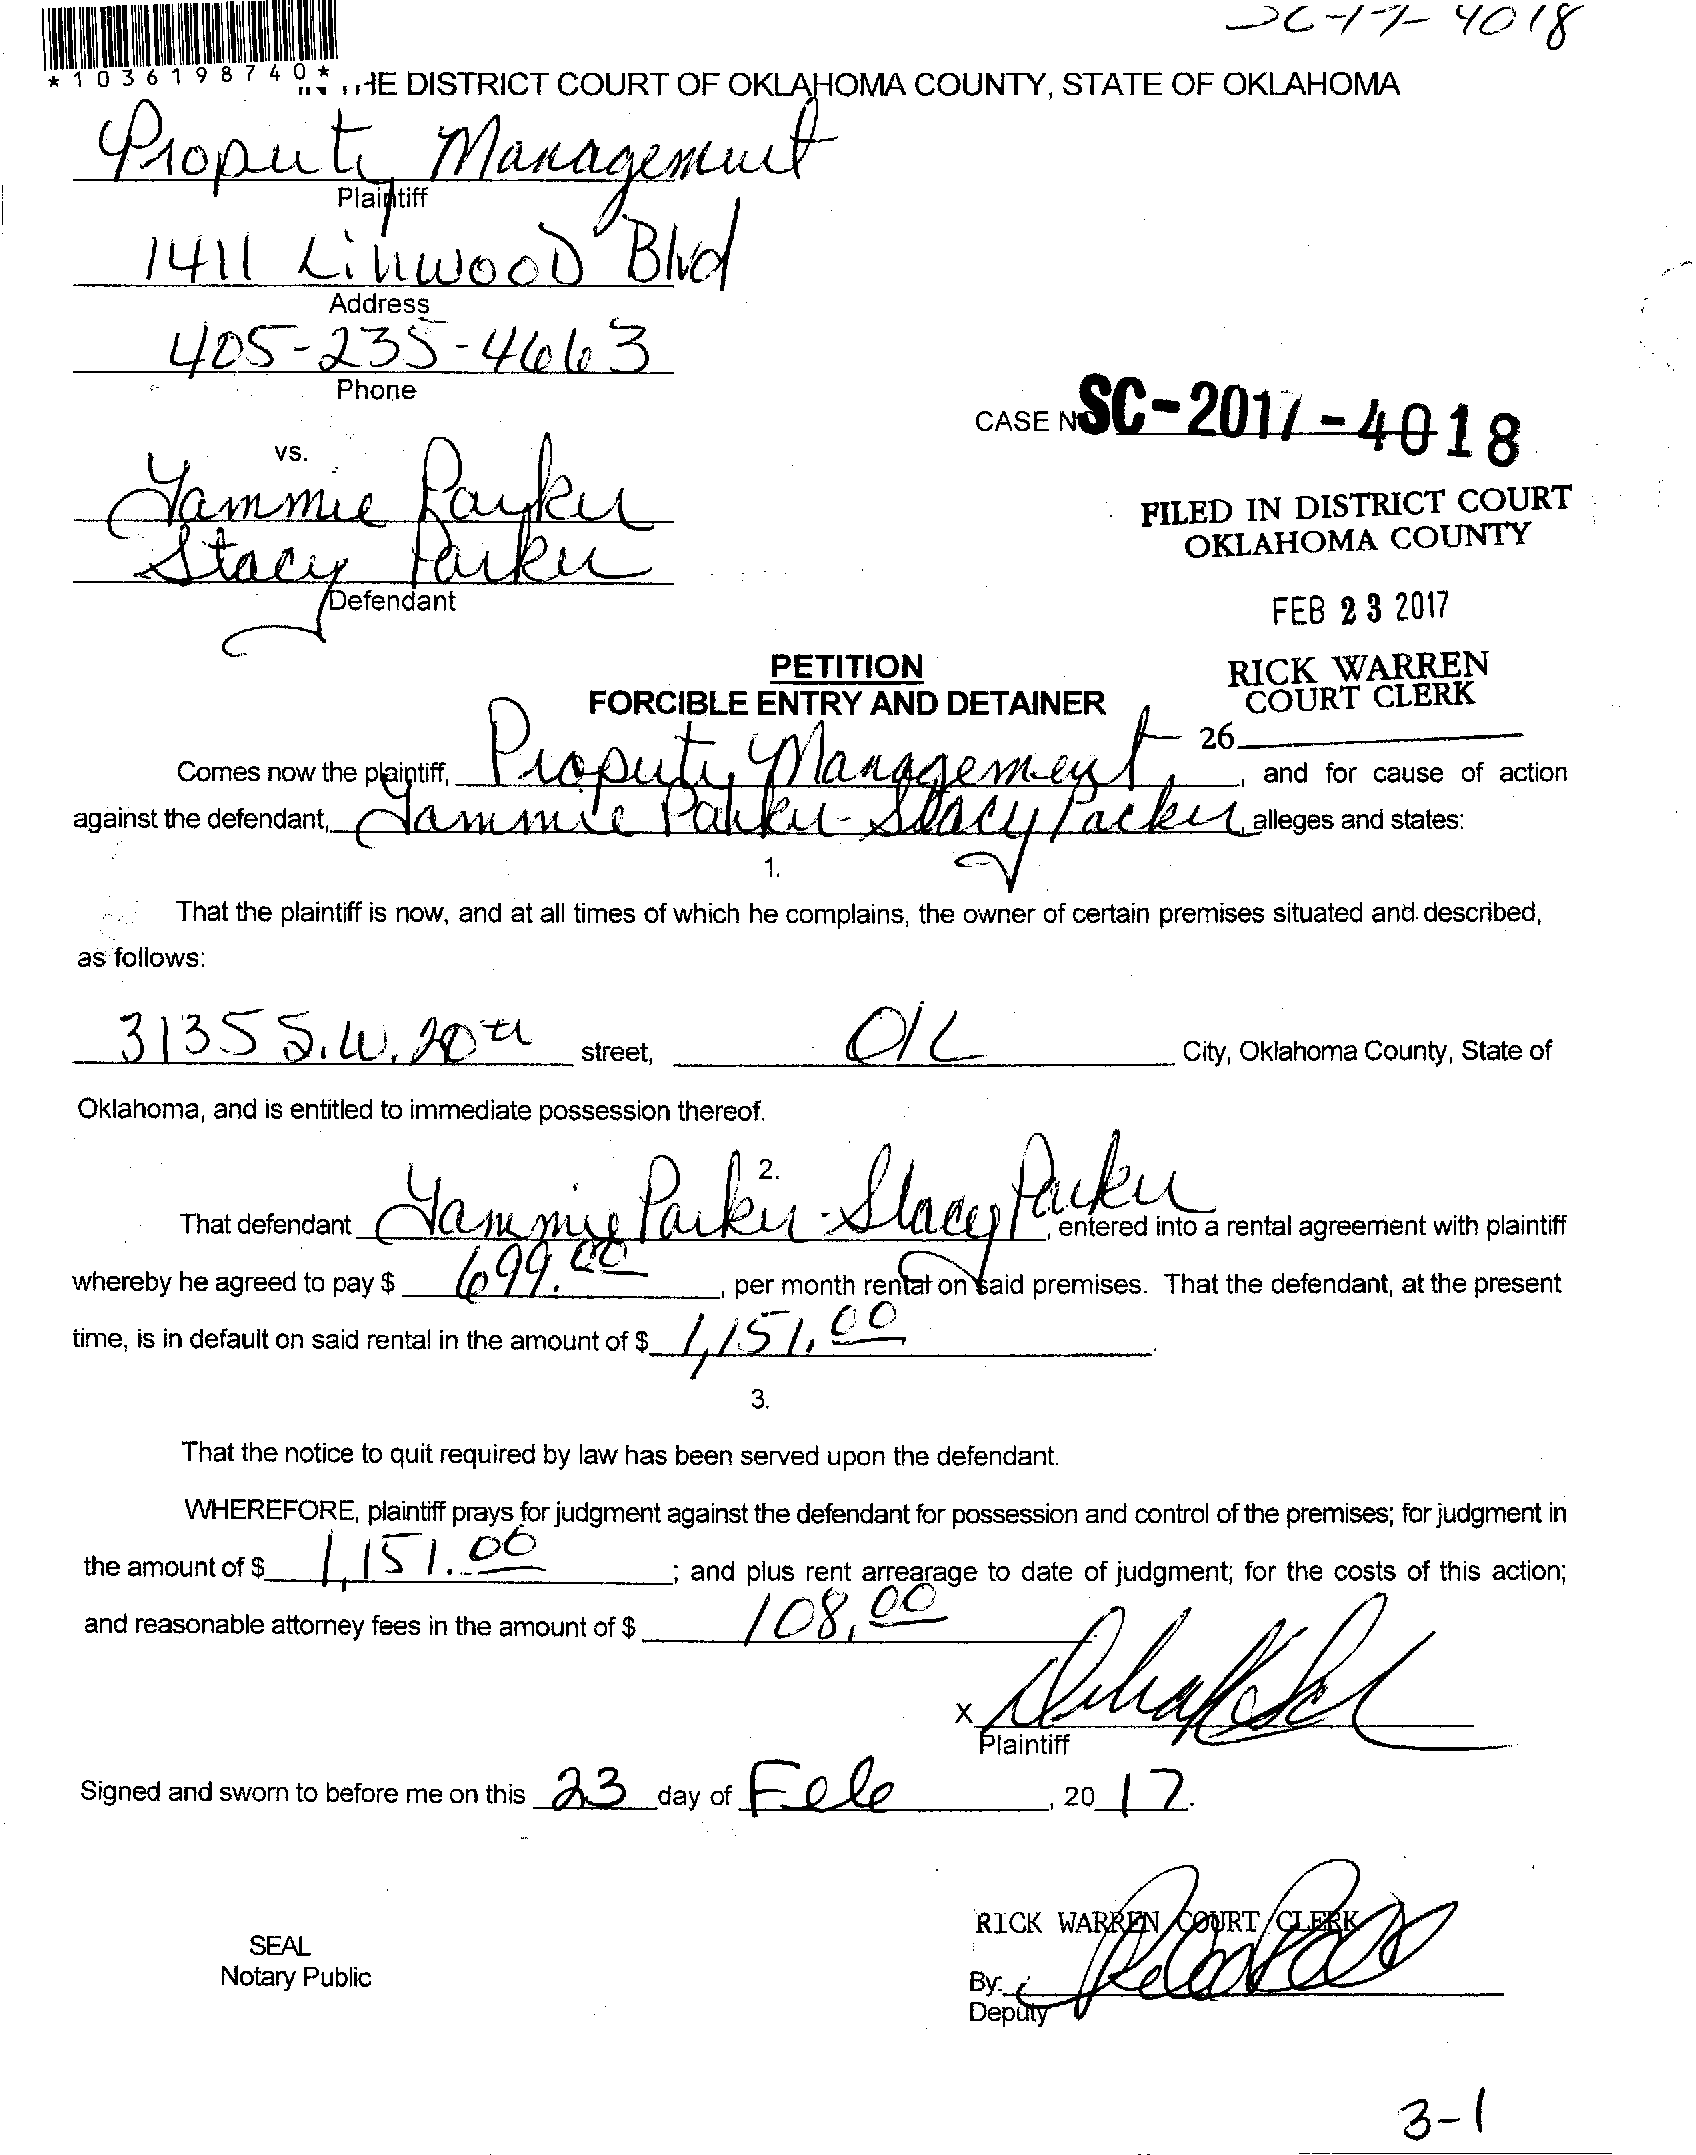 SC-17-4018
*1036198740*
THE DISTRICT COURT OF OKLAHOMA COUNTY, STATE OF OKLAHOMA
Property Management
Plaintiff
1411 Linwood Blvd
Address
405-235-4663
Phone
CASE NO SC-2017-4018
vs.
Tammie Parker
Stacy Parker
Defendant
FILED IN DISTRICT COURT
OKLAHOMA COUNTY
FEB 23 2017
RICK WARREN
COURT CLERK
26
PETITION
FORCIBLE ENTRY AND DETAINER
Comes now the plaintiff, Property Management, and for cause of action
against the defendant, Tammie Parker - Stacy Parker, alleges and states:
1.
That the plaintiff is now, and at all times of which he complains, the owner of certain premises situated and described,
as follows:
3135 S.W. 20th street, OK City, Oklahoma County, State of
Oklahoma, and is entitled to immediate possession thereof.
2.
That defendant Tammie Parker - Stacy Parker, entered into a rental agreement with plaintiff
whereby he agreed to pay $ 699.00, per month rental on said premises. That the defendant, at the present
time, is in default on said rental in the amount of $ 1,151.00.
3.
That the notice to quit required by law has been served upon the defendant.
WHEREFORE, plaintiff prays for judgment against the defendant for possession and control of the premises; for judgment in
the amount of $ 1,151.00; and plus rent arrearage to date of judgment; for the costs of this action;
and reasonable attorney fees in the amount of $ 108.00
X
Plaintiff
Signed and sworn to before me on this 23 day of Feb, 20 17.
SEAL
Notary Public
RICK WARREN COURT CLERK
By:
Deputy
3-1